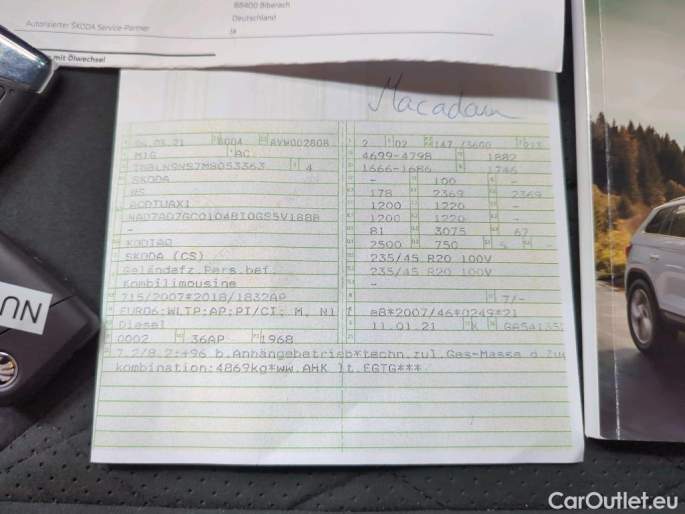 88400 Biberach
Deutschland
Autorisierter ŠKODA Service-Partner
Ja
mit Ölwechsel
Macadam
04.03.21 8004 AVW002808
M1G AC
4
SKODA
NS
NAD7AD7GC0104BI0GS5V1888
-
KODIAQ
SKODA (CS)
Geländefz.Pers.bef.
Kombilimousine
715/2007*2018/1832AP
EURO6;WLTP;AP;PI/CI; M, N1 I
Diesel
0002 36AP 1968
2 02 147 /3600
4699-4798 1882
1666-1686 1746
- 100 -
178 2369 2369
1200 1220 -
1200 1220 -
81 3075 67
2500 750 5 -
235/45 R20 100V
235/45 R20 100V
-
7/-
e8*2007/46*0249*21
11.01.21 K
7.2/8.2:+96 b.Anhängebetrieb*techn.zul.Ges-Masse d.Zug
kombination:4869kg*ww.AHK lt.EGTG***
NU
CarOutlet.eu